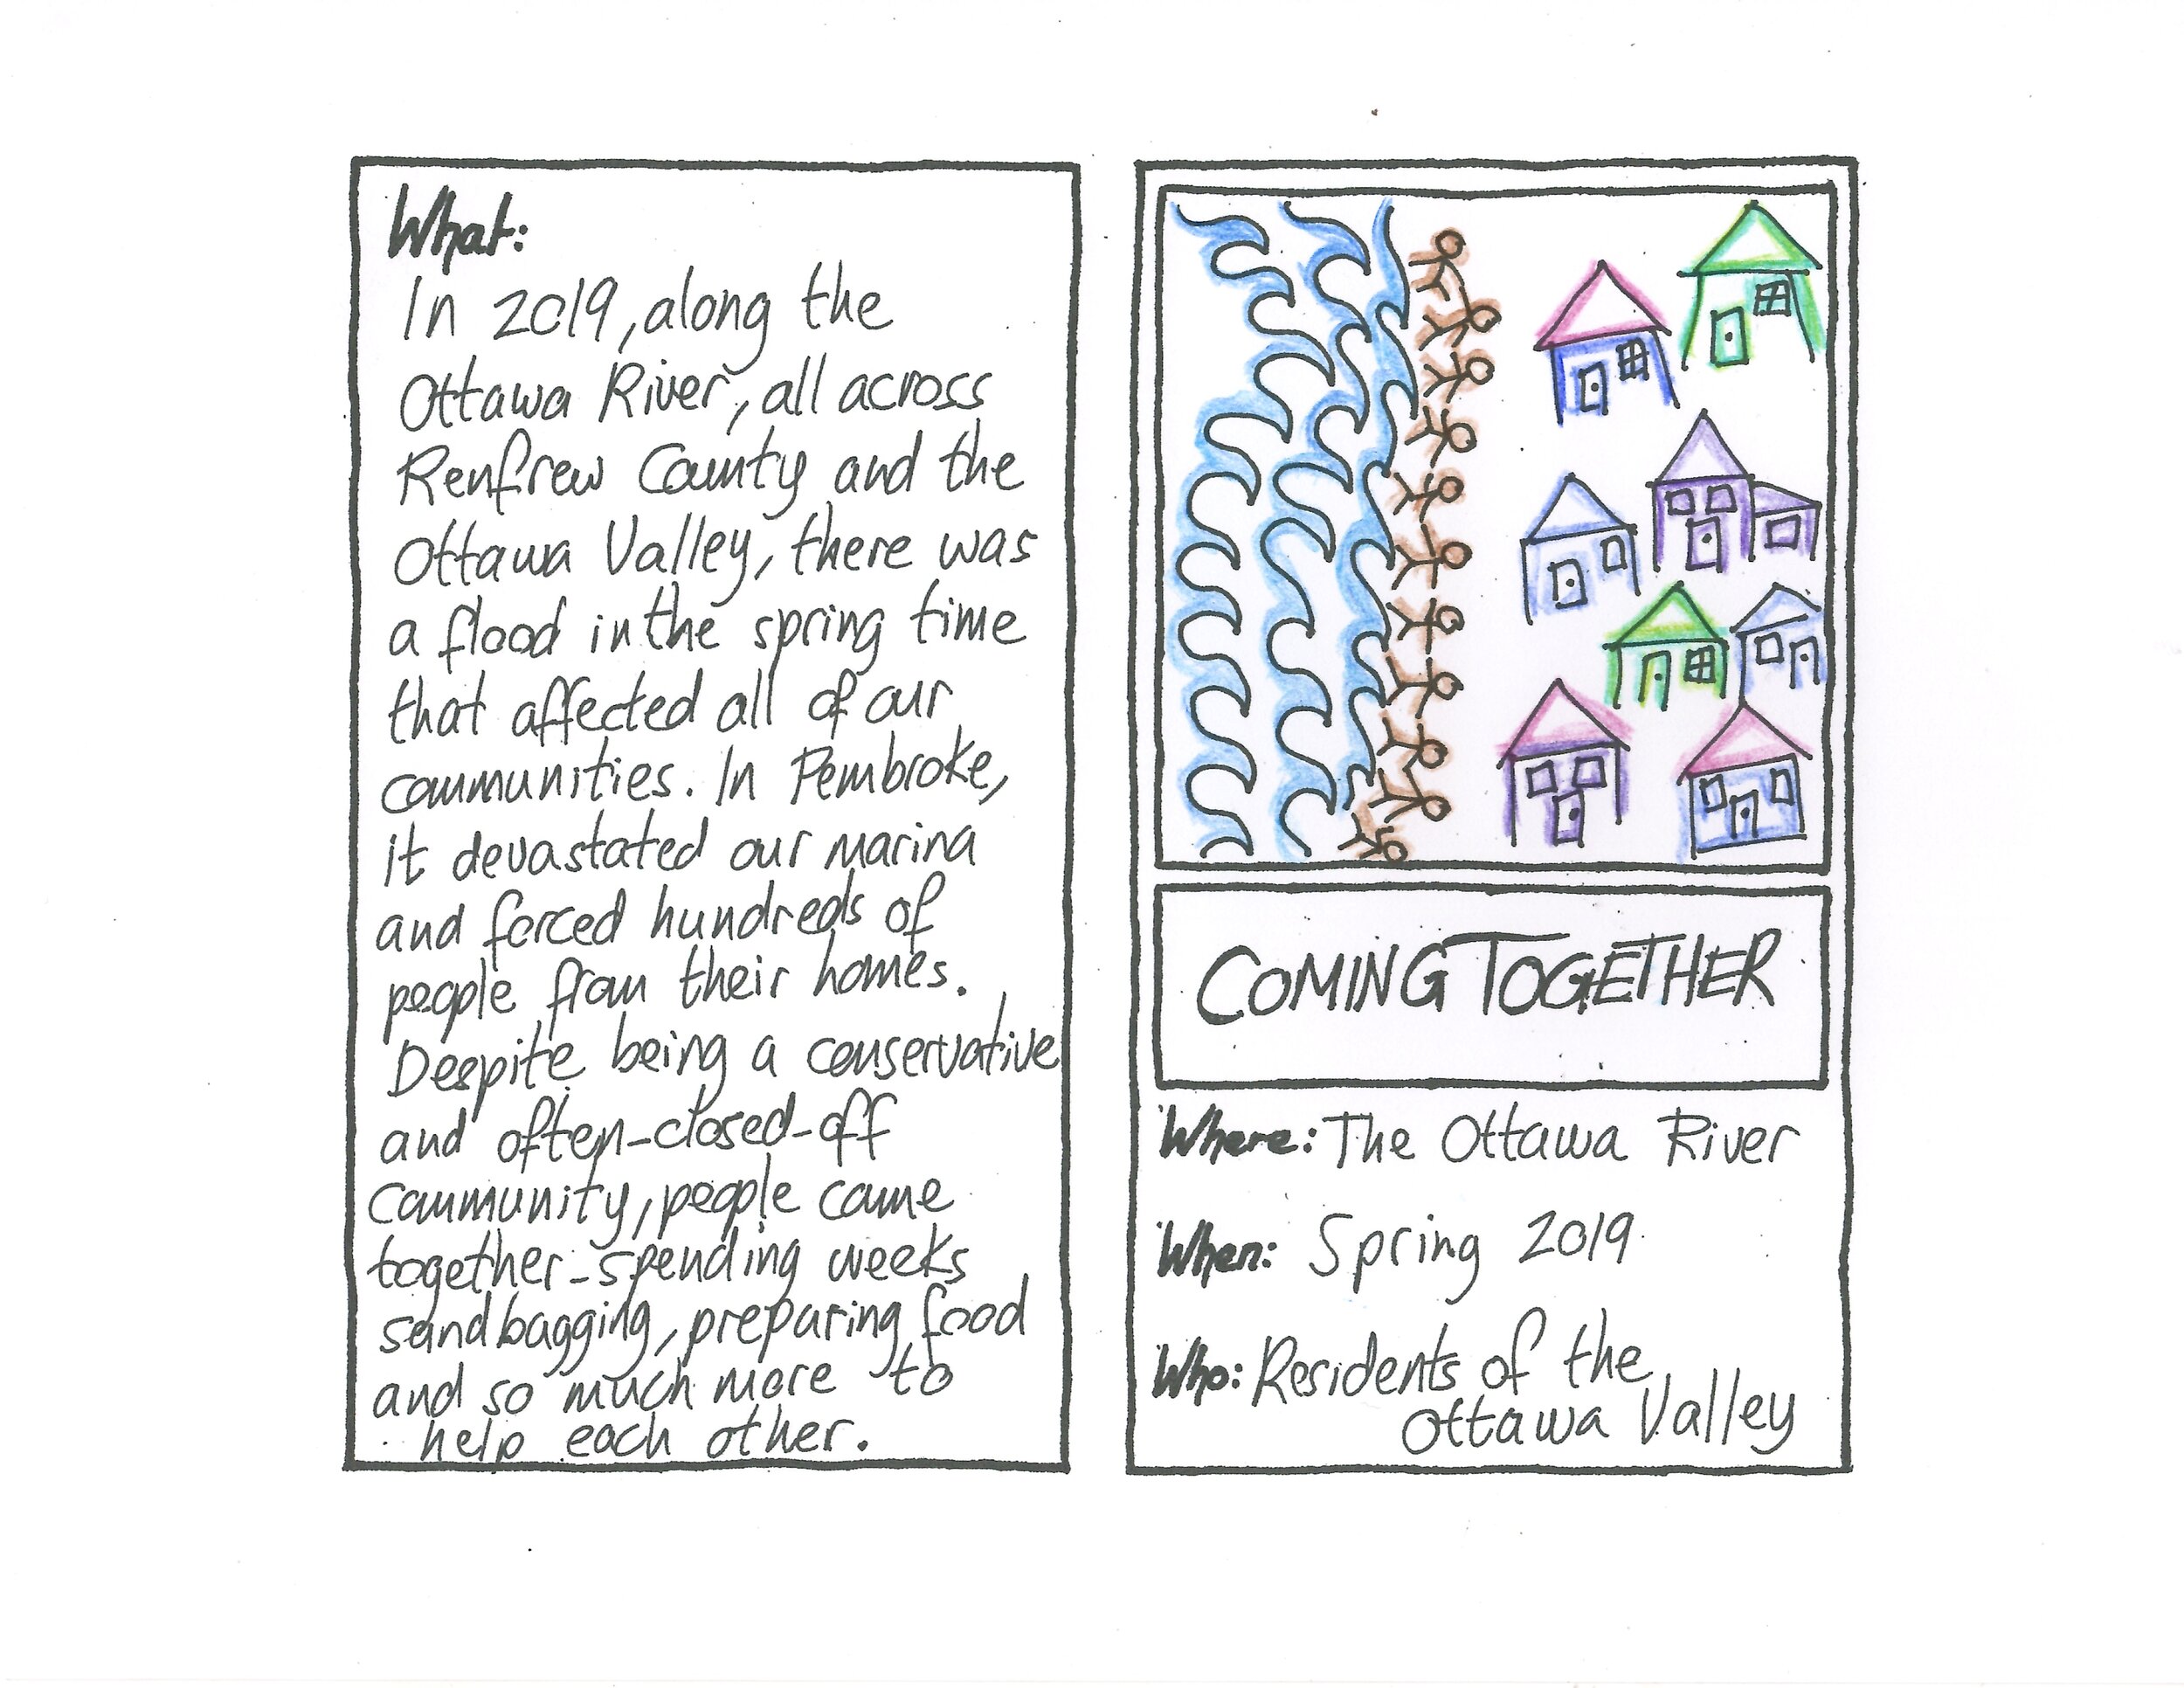 What:
In 2019, along the
Ottawa River, all across
Renfrew County and the
Ottawa Valley, there was
a flood in the spring time
that affected all of our
communities. In Pembroke,
it devastated our marina
and forced hundreds of
people from their homes.
Despite being a conservative
and often-closed-off
community, people came
together-spending weeks
sandbagging, preparing food
and so much more to
help each other.
COMING TOGETHER
Where: The Ottawa River
When: Spring 2019
Who: Residents of the
Ottawa Valley